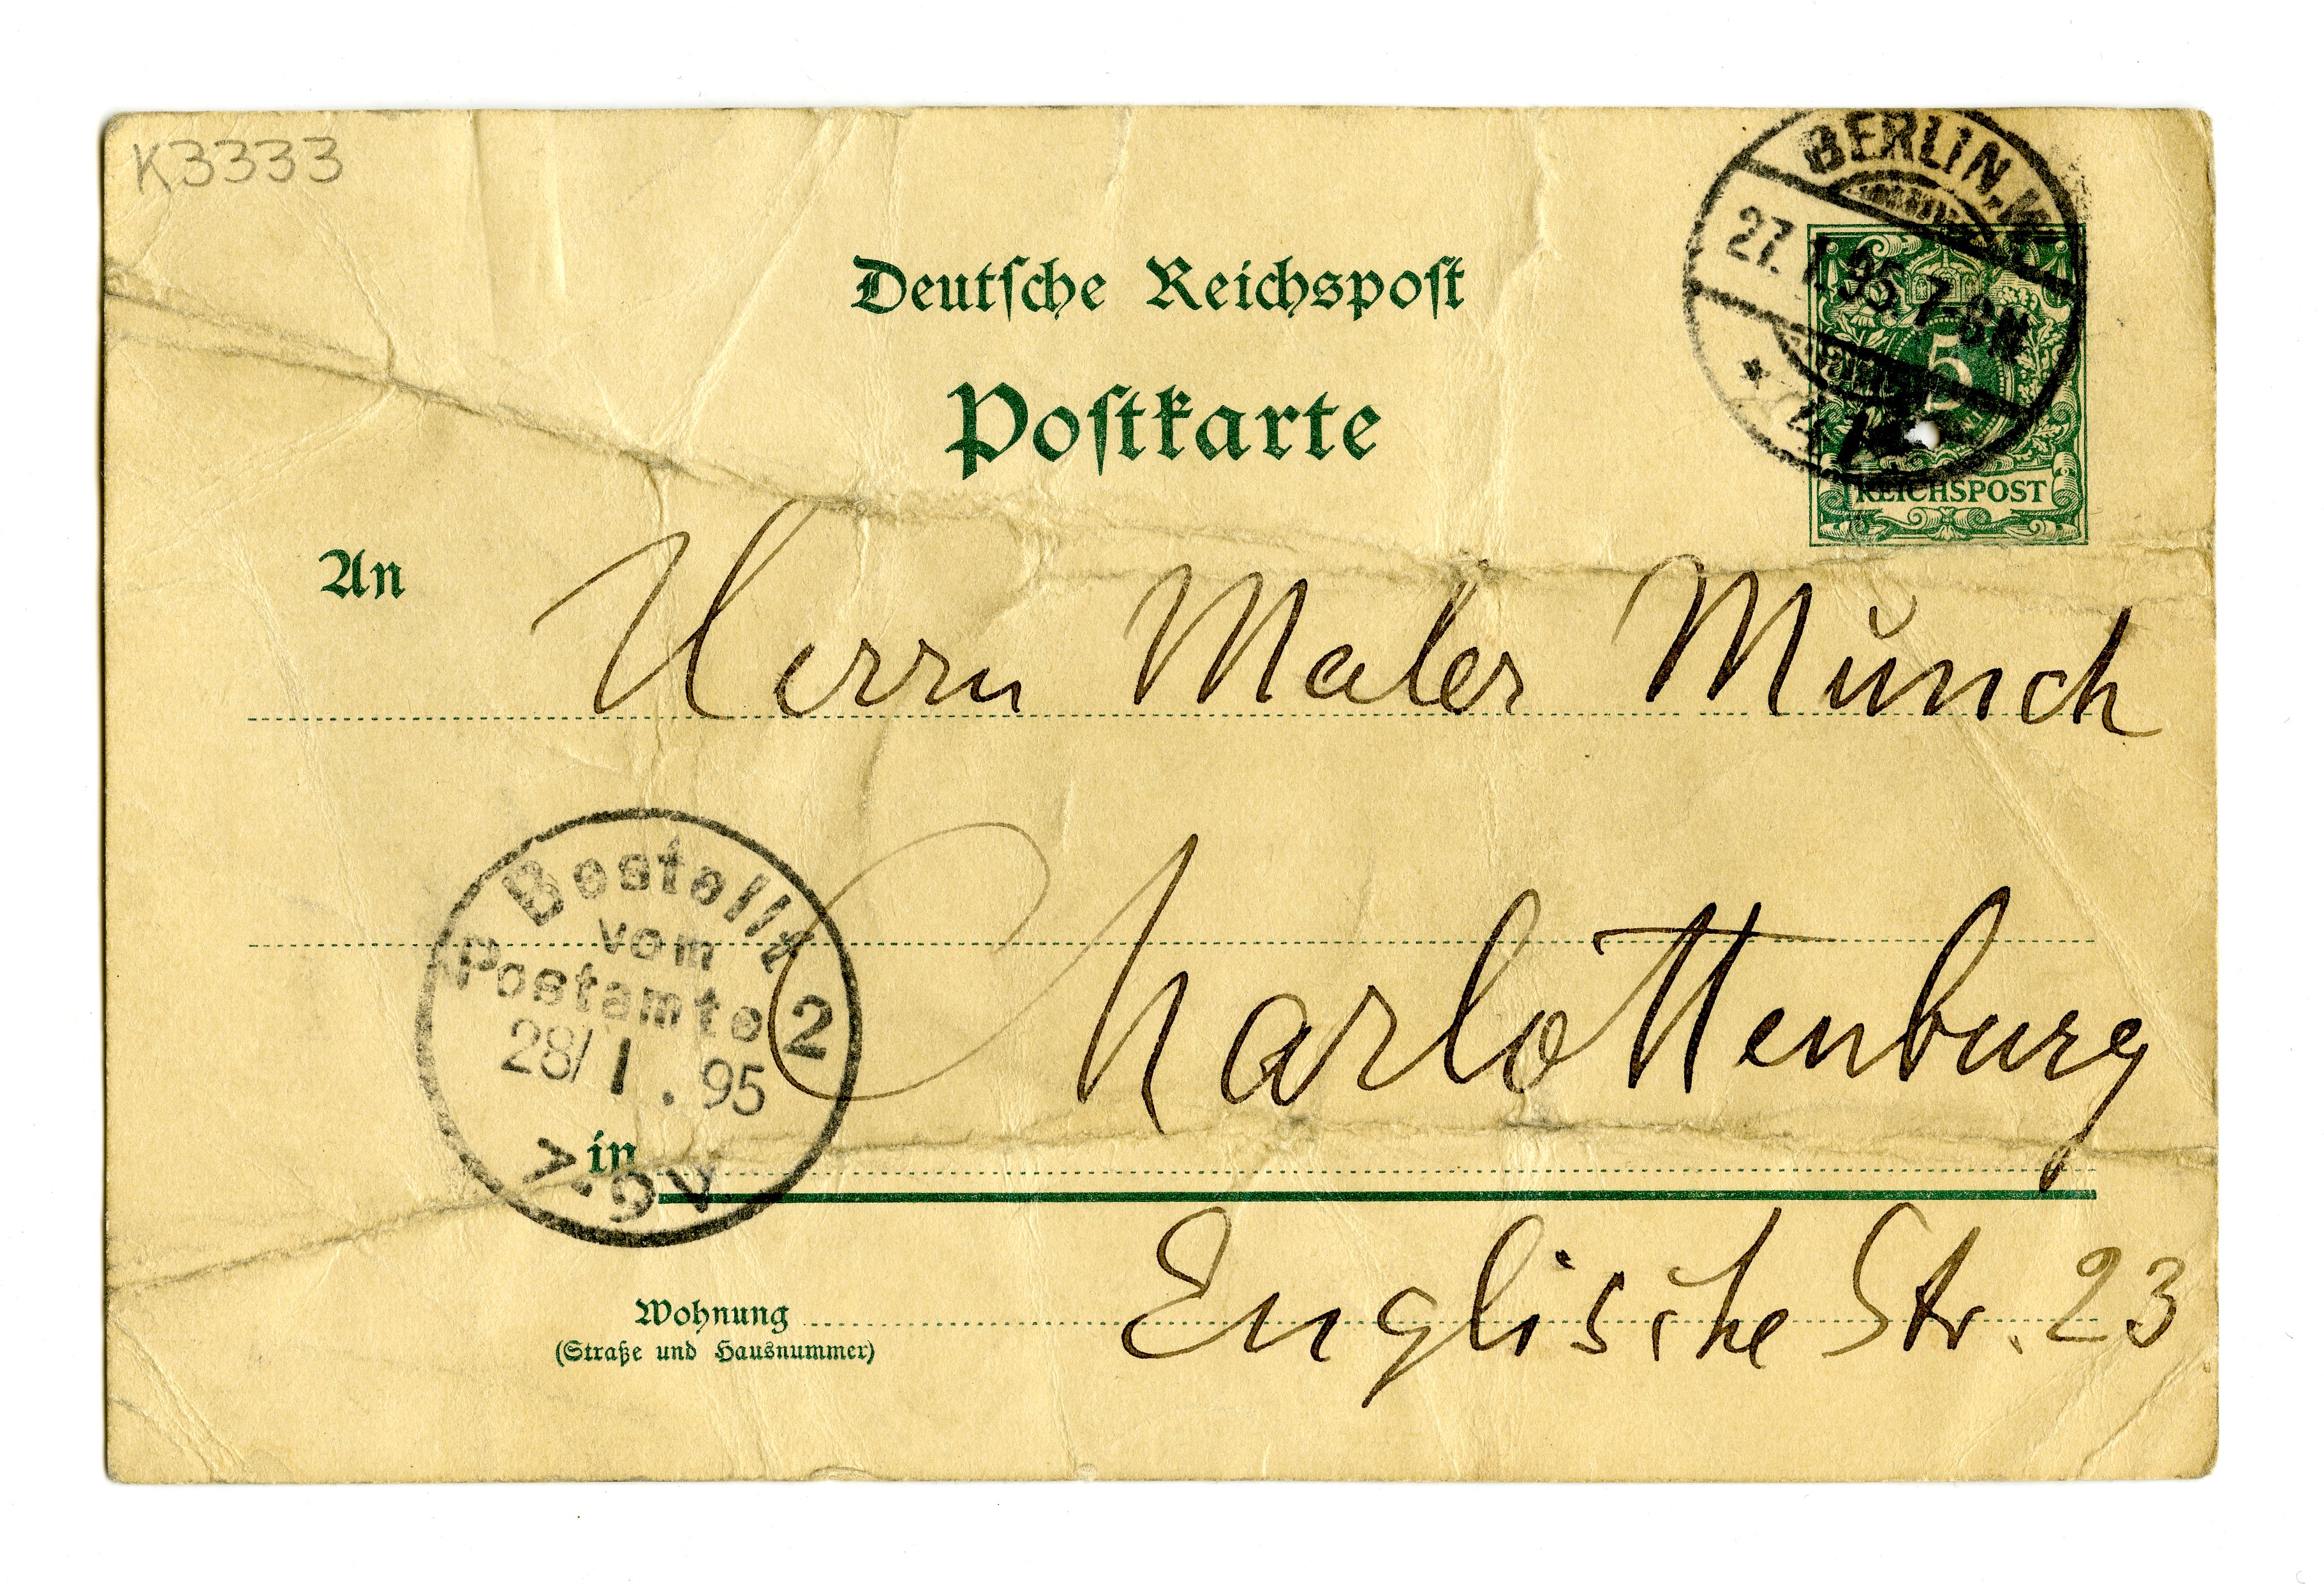 K3333
BERLIN, W.
27. 1. 95. 7-8N
Deutsche Reichspost
5
Postkarte
REICHSPOST
An Herrn Maler Munch
Bestellt
vom
Postamte 2
28/1.95
Charlottenburg
in
Wohnung Englische Str. 23
(Straße und Hausnummer)